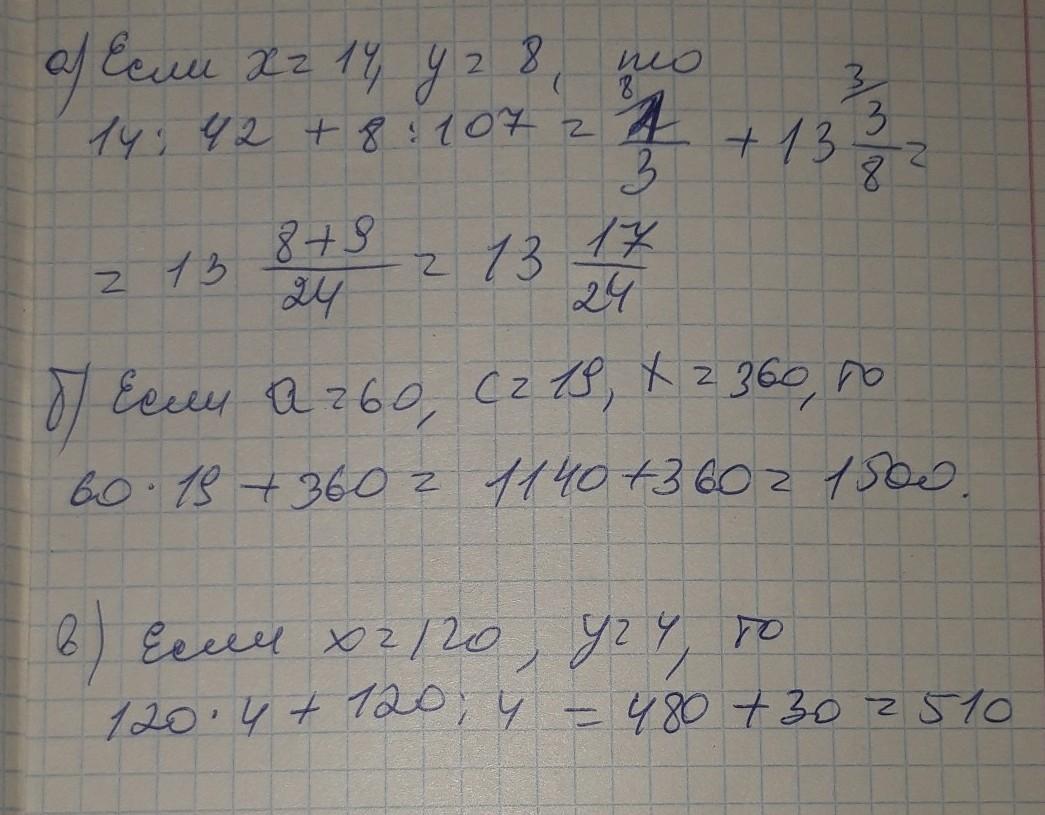 а) Если x = 14, y = 8, то
14 : 42 + 8 : 107 = 8/ 1/3 + 13 3/ 3/8 =
= 13 (8+9)/24 = 13 17/24
б) Если a = 60, c = 19, x = 360, то
60 · 19 + 360 = 1140 + 360 = 1500.
в) Если x = 120, y = 4, то
120 · 4 + 120 : 4 = 480 + 30 = 510